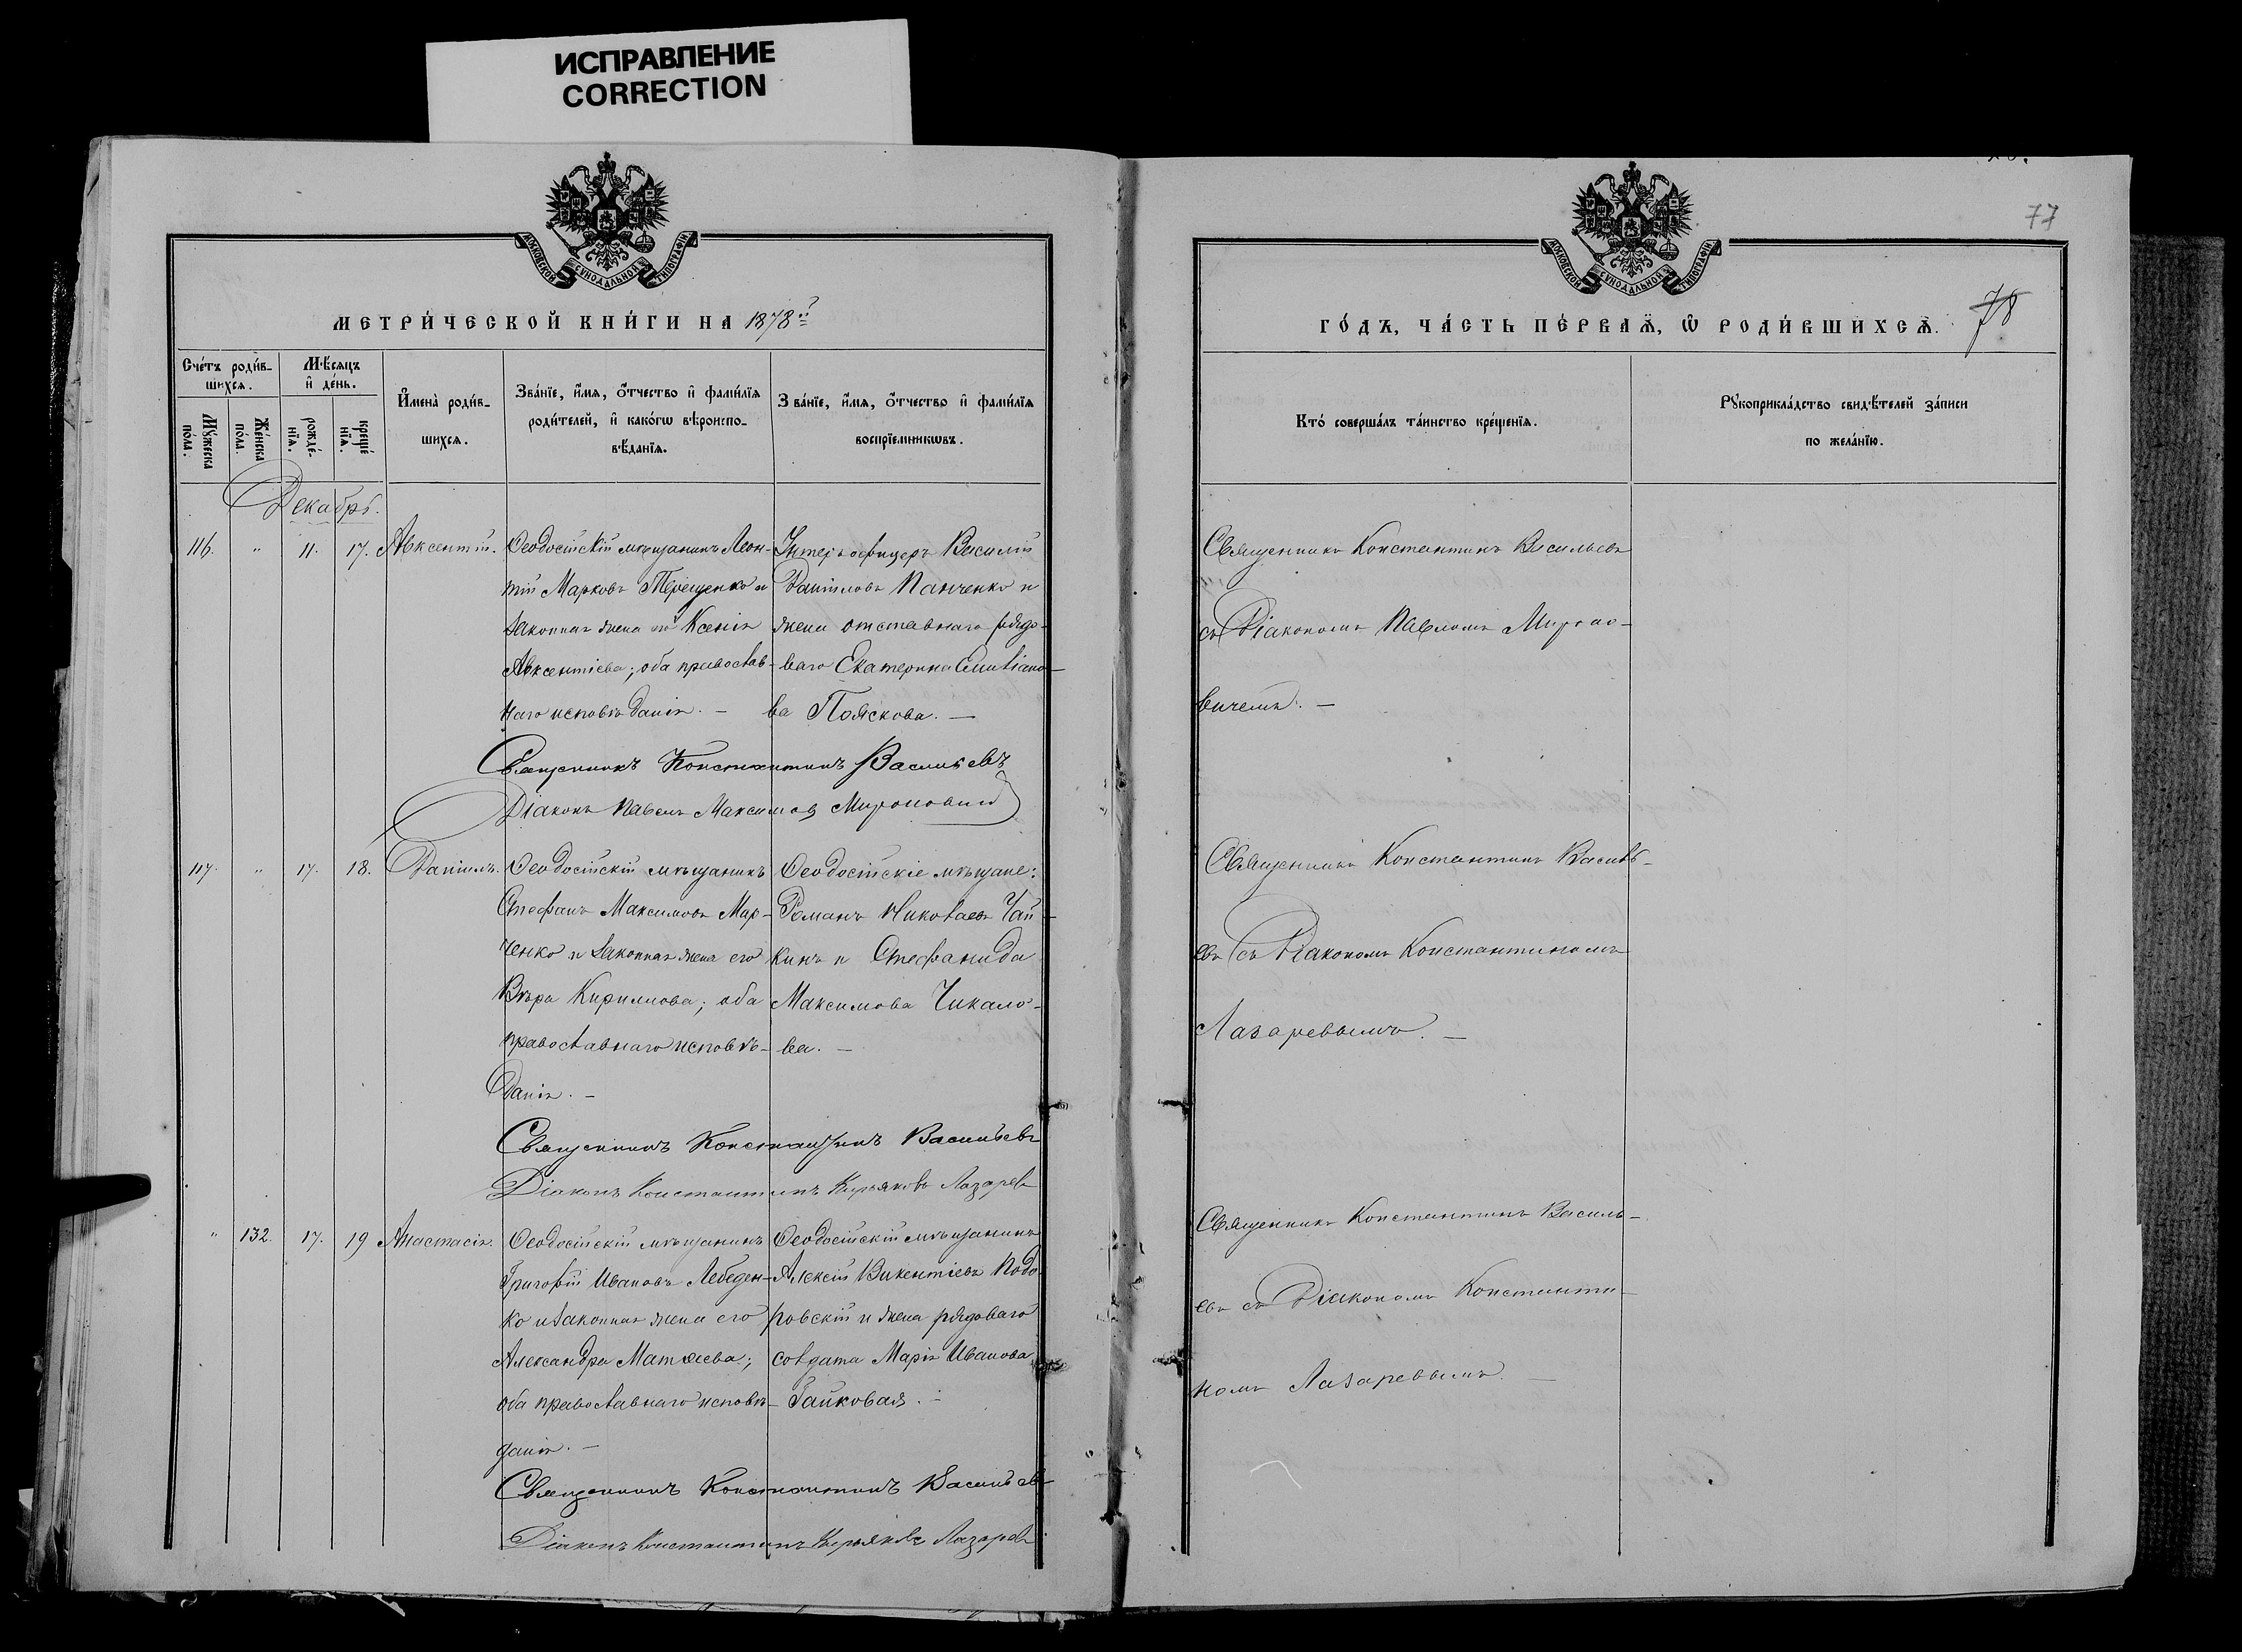 ИСПРАВЛЕНИЕ
CORRECTION
МОСКОВСКОЙ СѴНОДАЛЬНОЙ ТИПОГРАФІИ
МЕТРИ́ЧЕСКОЙ КНИ́ГИ НА 1878й
Сче́тъ роди́в-
шихсѧ.
Мѣ́сѧцъ
и҆ де́нь.
Мꙋ́жеска
пола.
Же́нска
по́ла.
рожде́-
нїѧ.
креще́
нїѧ.
И҆мена̀ роди́в-
шихсѧ.
Зва́нїе, и҆́мѧ, ѻ҆́тчество и҆ фамї́лїѧ
роди́телей, и҆ како́гѡ вѣроиспо-
вѣ́данїѧ.
Зва́нїе, и҆́мѧ, ѻ҆́тчество и҆ фами́лїѧ
воспрїе́мникѡвъ.
Декабрь.
116. " 11. 17. Авксентій.
Ѳеодосійскій мѣщанинъ Леон-
тій Марковъ Терещенко и
законная жена его Ксенія
Авксентіева; оба православ-
наго исповѣданія. —
Унтеръ офицеръ Василій
Даниловъ Панченко и
жена отставнаго рядо-
ваго Екатерина Емиліано-
ва Пояскова. —
Священникъ Константинъ Васильевъ
Діаконъ Павелъ Максимовъ Мироновичъ
117. " 17. 18. Даніилъ.
Ѳеодосійскій мѣщанинъ
Стефанъ Максимовъ Мар-
ченко и законная жена его
Вѣра Кириллова; оба
православнаго исповѣ-
данія. —
Ѳеодосійскіе мѣщане:
Романъ Николаевъ Чай-
кинъ и Стефанида
Максимова Чикало-
ва. —
Священникъ Константинъ Васильевъ
Діаконъ Константинъ Кирьяковъ Лазаревъ
" 132. 17. 19 Анастасія.
Ѳеодосійскій мѣщанинъ
Григорій Ивановъ Лебеден-
ко и законная жена его
Александра Матѳеева;
оба православнаго исповѣ-
данія. —
Ѳеодосійскій мѣщанинъ
Алексій Викентіевъ Подо-
ровскій и жена рядоваго
солдата Марія Иванова
Гайковая. —
Священникъ Константинъ Васильевъ
Діаконъ Константинъ Кирьяковъ Лазаревъ
77
МОСКОВСКОЙ СѴНОДАЛЬНОЙ ТИПОГРАФІИ
78
ГО́ДЪ, ЧА́СТЬ ПЕ́РВАѦ, Ѡ҆ РОДИ́ВШИХСѦ.
Кто́ соверша́лъ та́инство креще́нїѧ.
Рꙋкоприкла́дство свидѣ́телей за́писи
по жела́нїю.
Священникъ Константинъ Васильевъ
съ Діакономъ Павломъ Мироно-
вичемъ. —
Священникъ Константинъ Василь-
евъ съ Діакономъ Константиномъ
Лазаревымъ. —
Священникъ Константинъ Василь-
евъ съ Діакономъ Константи-
номъ Лазаревымъ. —